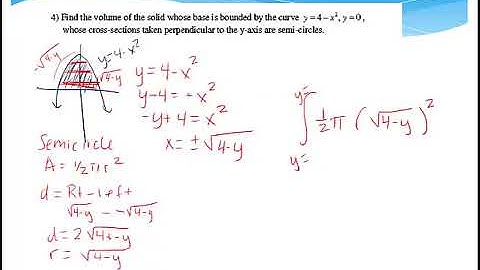 4) Find the volume of the solid whose base is bounded by the curve y = 4 − x², y = 0,
whose cross-sections taken perpendicular to the y-axis are semi-circles.
-√4-y
y=4-x²
√4-y
y = 4 - x²
y-4 = -x²
-y+4 = x²
x = ±√4-y
Semicircle
A = 1/2 πr²
d = Rt - left
√4-y - -√4-y
d = 2√4-y
r = √4-y
y=
∫ 1/2 π (√4-y)²
y=